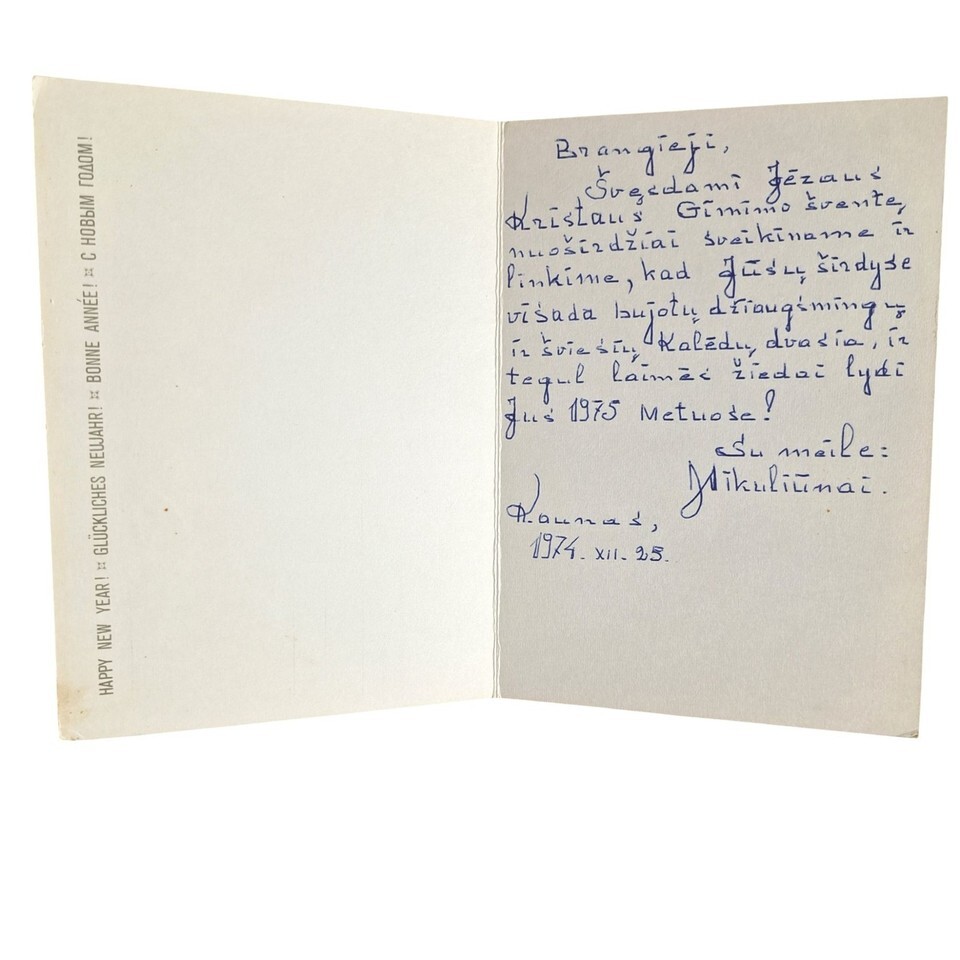 HAPPY NEW YEAR! ¤ GLÜCKLICHES NEUJAHR! ¤ BONNE ANNÉE! ¤ С НОВЫМ ГОДОМ!
Brangieji,
Švęsdami Jėzaus
Kristaus Gimimo šventę,
nuoširdžiai sveikiname ir
linkime, kad Jūsų širdyse
visada bujotų džiaugsmingų
ir šviesių Kalėdų dvasia, ir
tegul laimės žiedai lydi
Jus 1975 Metuose!
Su meile:
Mikuliūnai.
Kaunas,
1974. XII. 25.